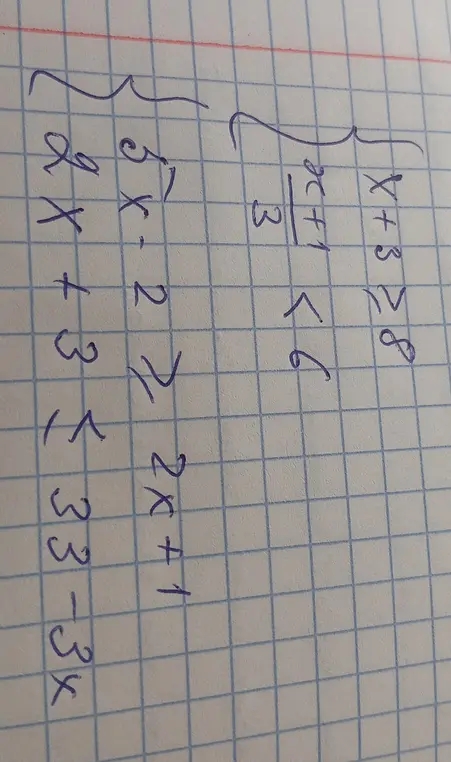 x + 3 ≥ 8
x + 1 / 3 < 6
5x - 2 ≥ 2x + 1
2x + 3 ≤ 33 - 3x